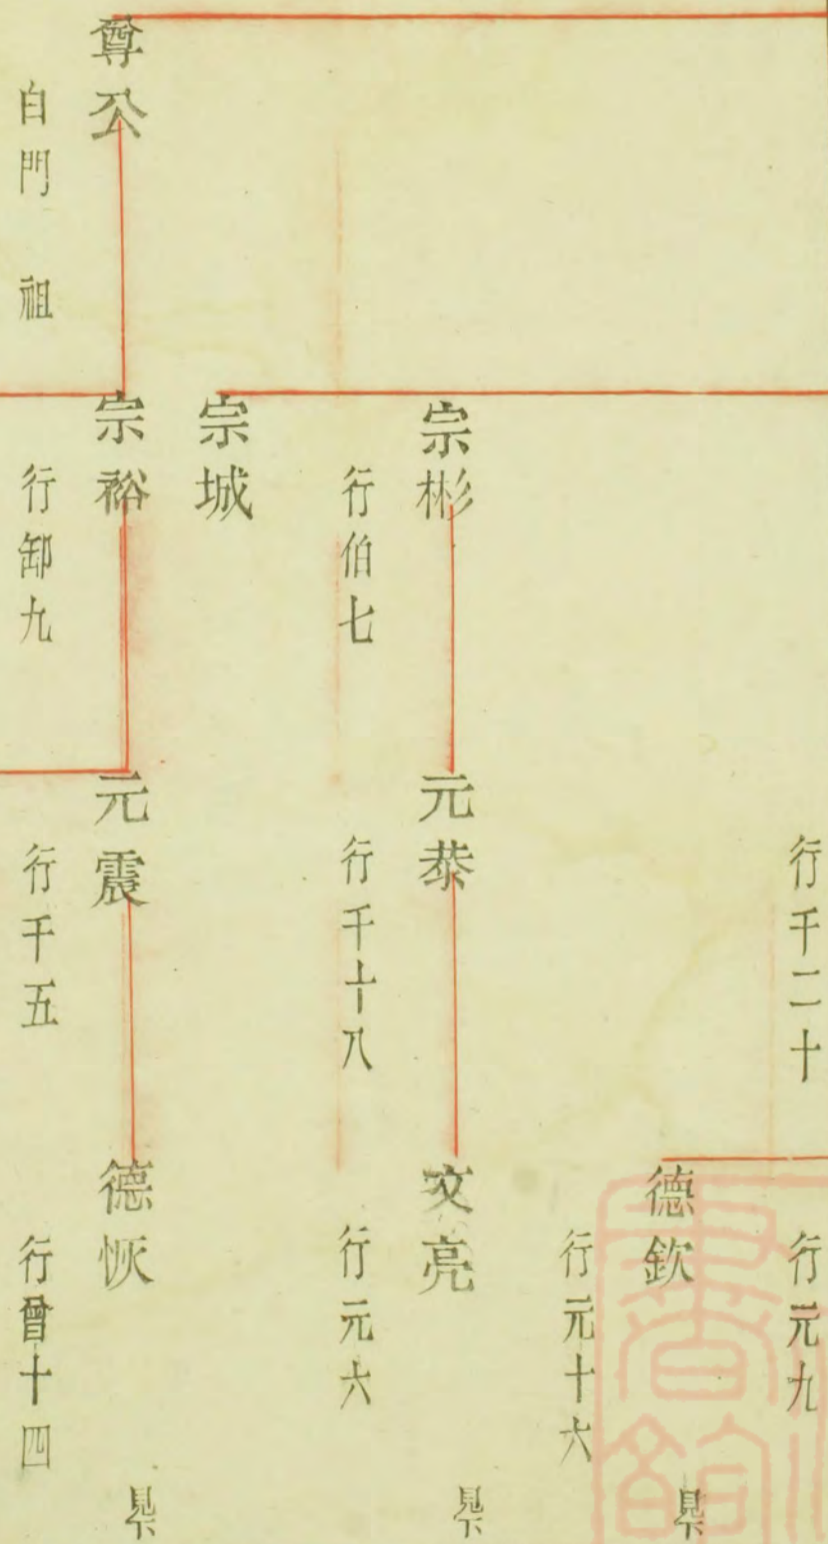 行千二十
行元九
德欽
行元十六
見下
宗彬
行伯七
元恭
行千十八
文亮
行元六
見下
宗城
尊公
白門祖
宗裕
行卸九
元震
行千五
德恢
行曾十四
見下
書館